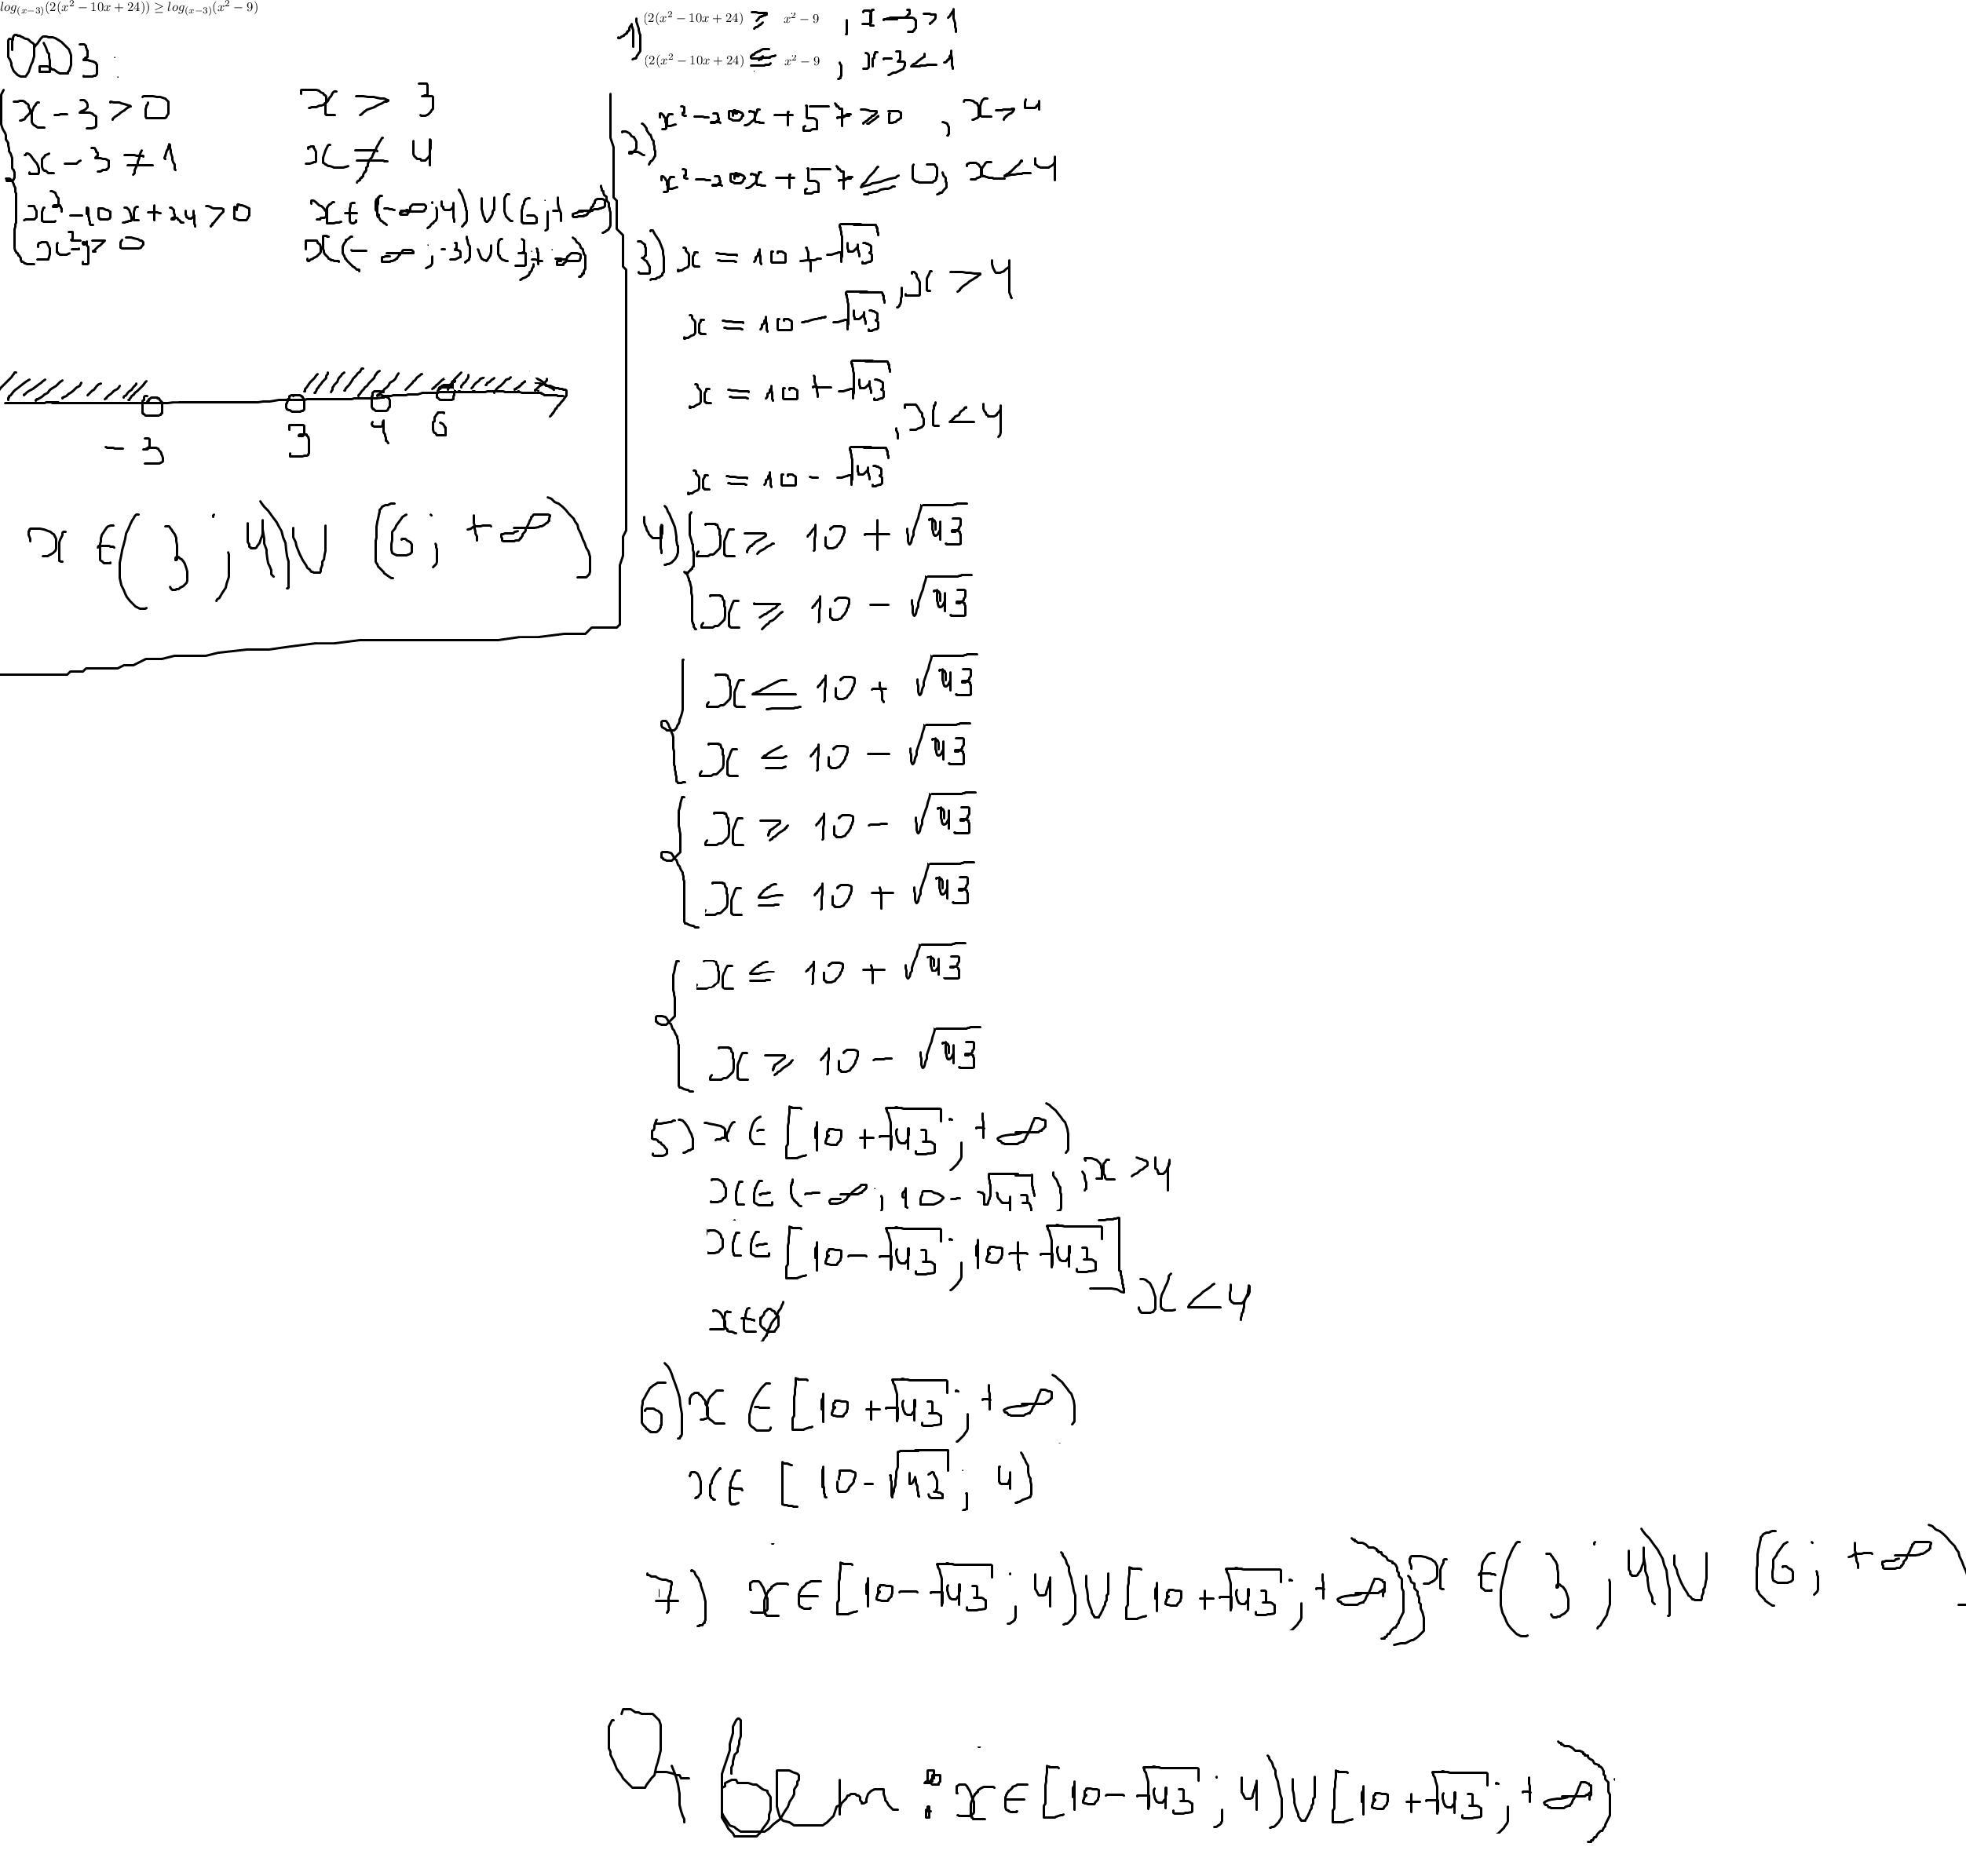 log_{(x−3)}(2(x² − 10x + 24)) ≥ log_{(x−3)}(x² − 9)
ОДЗ:
x − 3 > 0    x > 3
x − 3 ≠ 1    x ≠ 4
x² − 10x + 24 > 0    x ∈ (−∞; 4) ∪ (6; +∞)
x² − 9 > 0    x (−∞; −3) ∪ (3; +∞)
−3    3    4    6
x ∈ (3; 4) ∪ (6; +∞)
1) (2(x² − 10x + 24) ≥ x² − 9 , x − 3 > 1
(2(x² − 10x + 24) ≤ x² − 9 , x − 3 < 1
2) x² − 20x + 57 ≥ 0 , x > 4
x² − 20x + 57 ≤ 0, x < 4
3) x = 10 + √43
, x > 4
x = 10 − √43
x = 10 + √43
, x < 4
x = 10 − √43
4) x ≥ 10 + √43
x ≥ 10 − √43
x ≤ 10 + √43
x ≤ 10 − √43
x ≥ 10 − √43
x ≤ 10 + √43
x ≤ 10 + √43
x ≥ 10 − √43
5) x ∈ [10 + √43; +∞)
, x > 4
x ∈ (−∞; 10 − √43)
x ∈ [10 − √43; 10 + √43]
x < 4
x ∈ ∅
6) x ∈ [10 + √43; +∞)
x ∈ [10 − √43; 4)
7) x ∈ [10 − √43; 4) ∪ [10 + √43; +∞)) x ∈ (3; 4) ∪ (6; +∞)
Ответ: x ∈ [10 − √43; 4) ∪ [10 + √43; +∞)